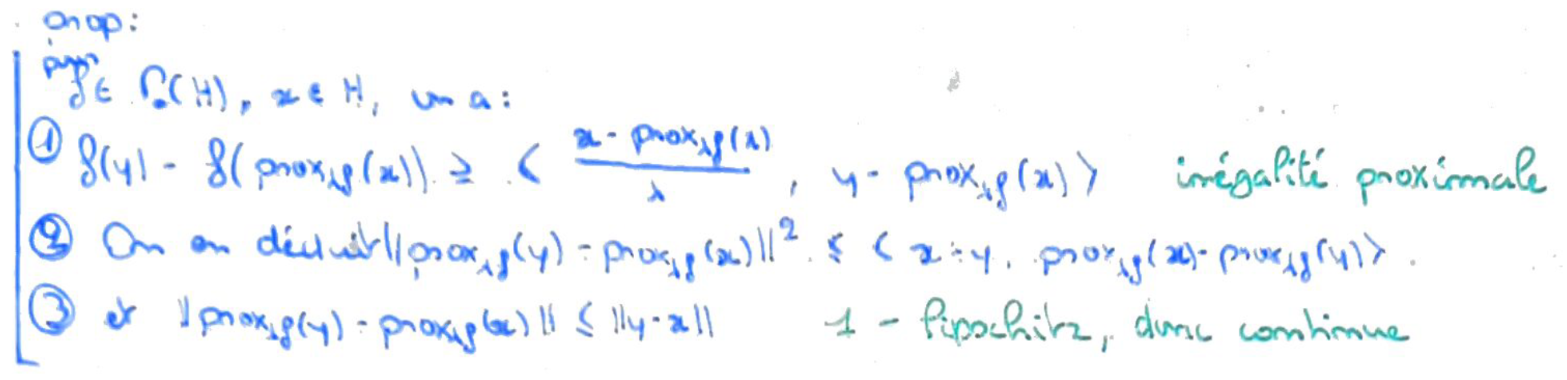 prop:
pour f ∈ Γ₀(H), x ∈ H, on a :
① f(y) - f(prox_λf(x)) ≥ < (x - prox_λf(x))/λ , y - prox_λf(x) > inégalité proximale
② On en déduit ||prox_λf(y) - prox_λf(x)||² ≤ < x - y, prox_λf(x) - prox_λf(y) >.
③ et ||prox_λf(y) - prox_λf(x)|| ≤ ||y - x|| 1 - lipschitz, donc continue